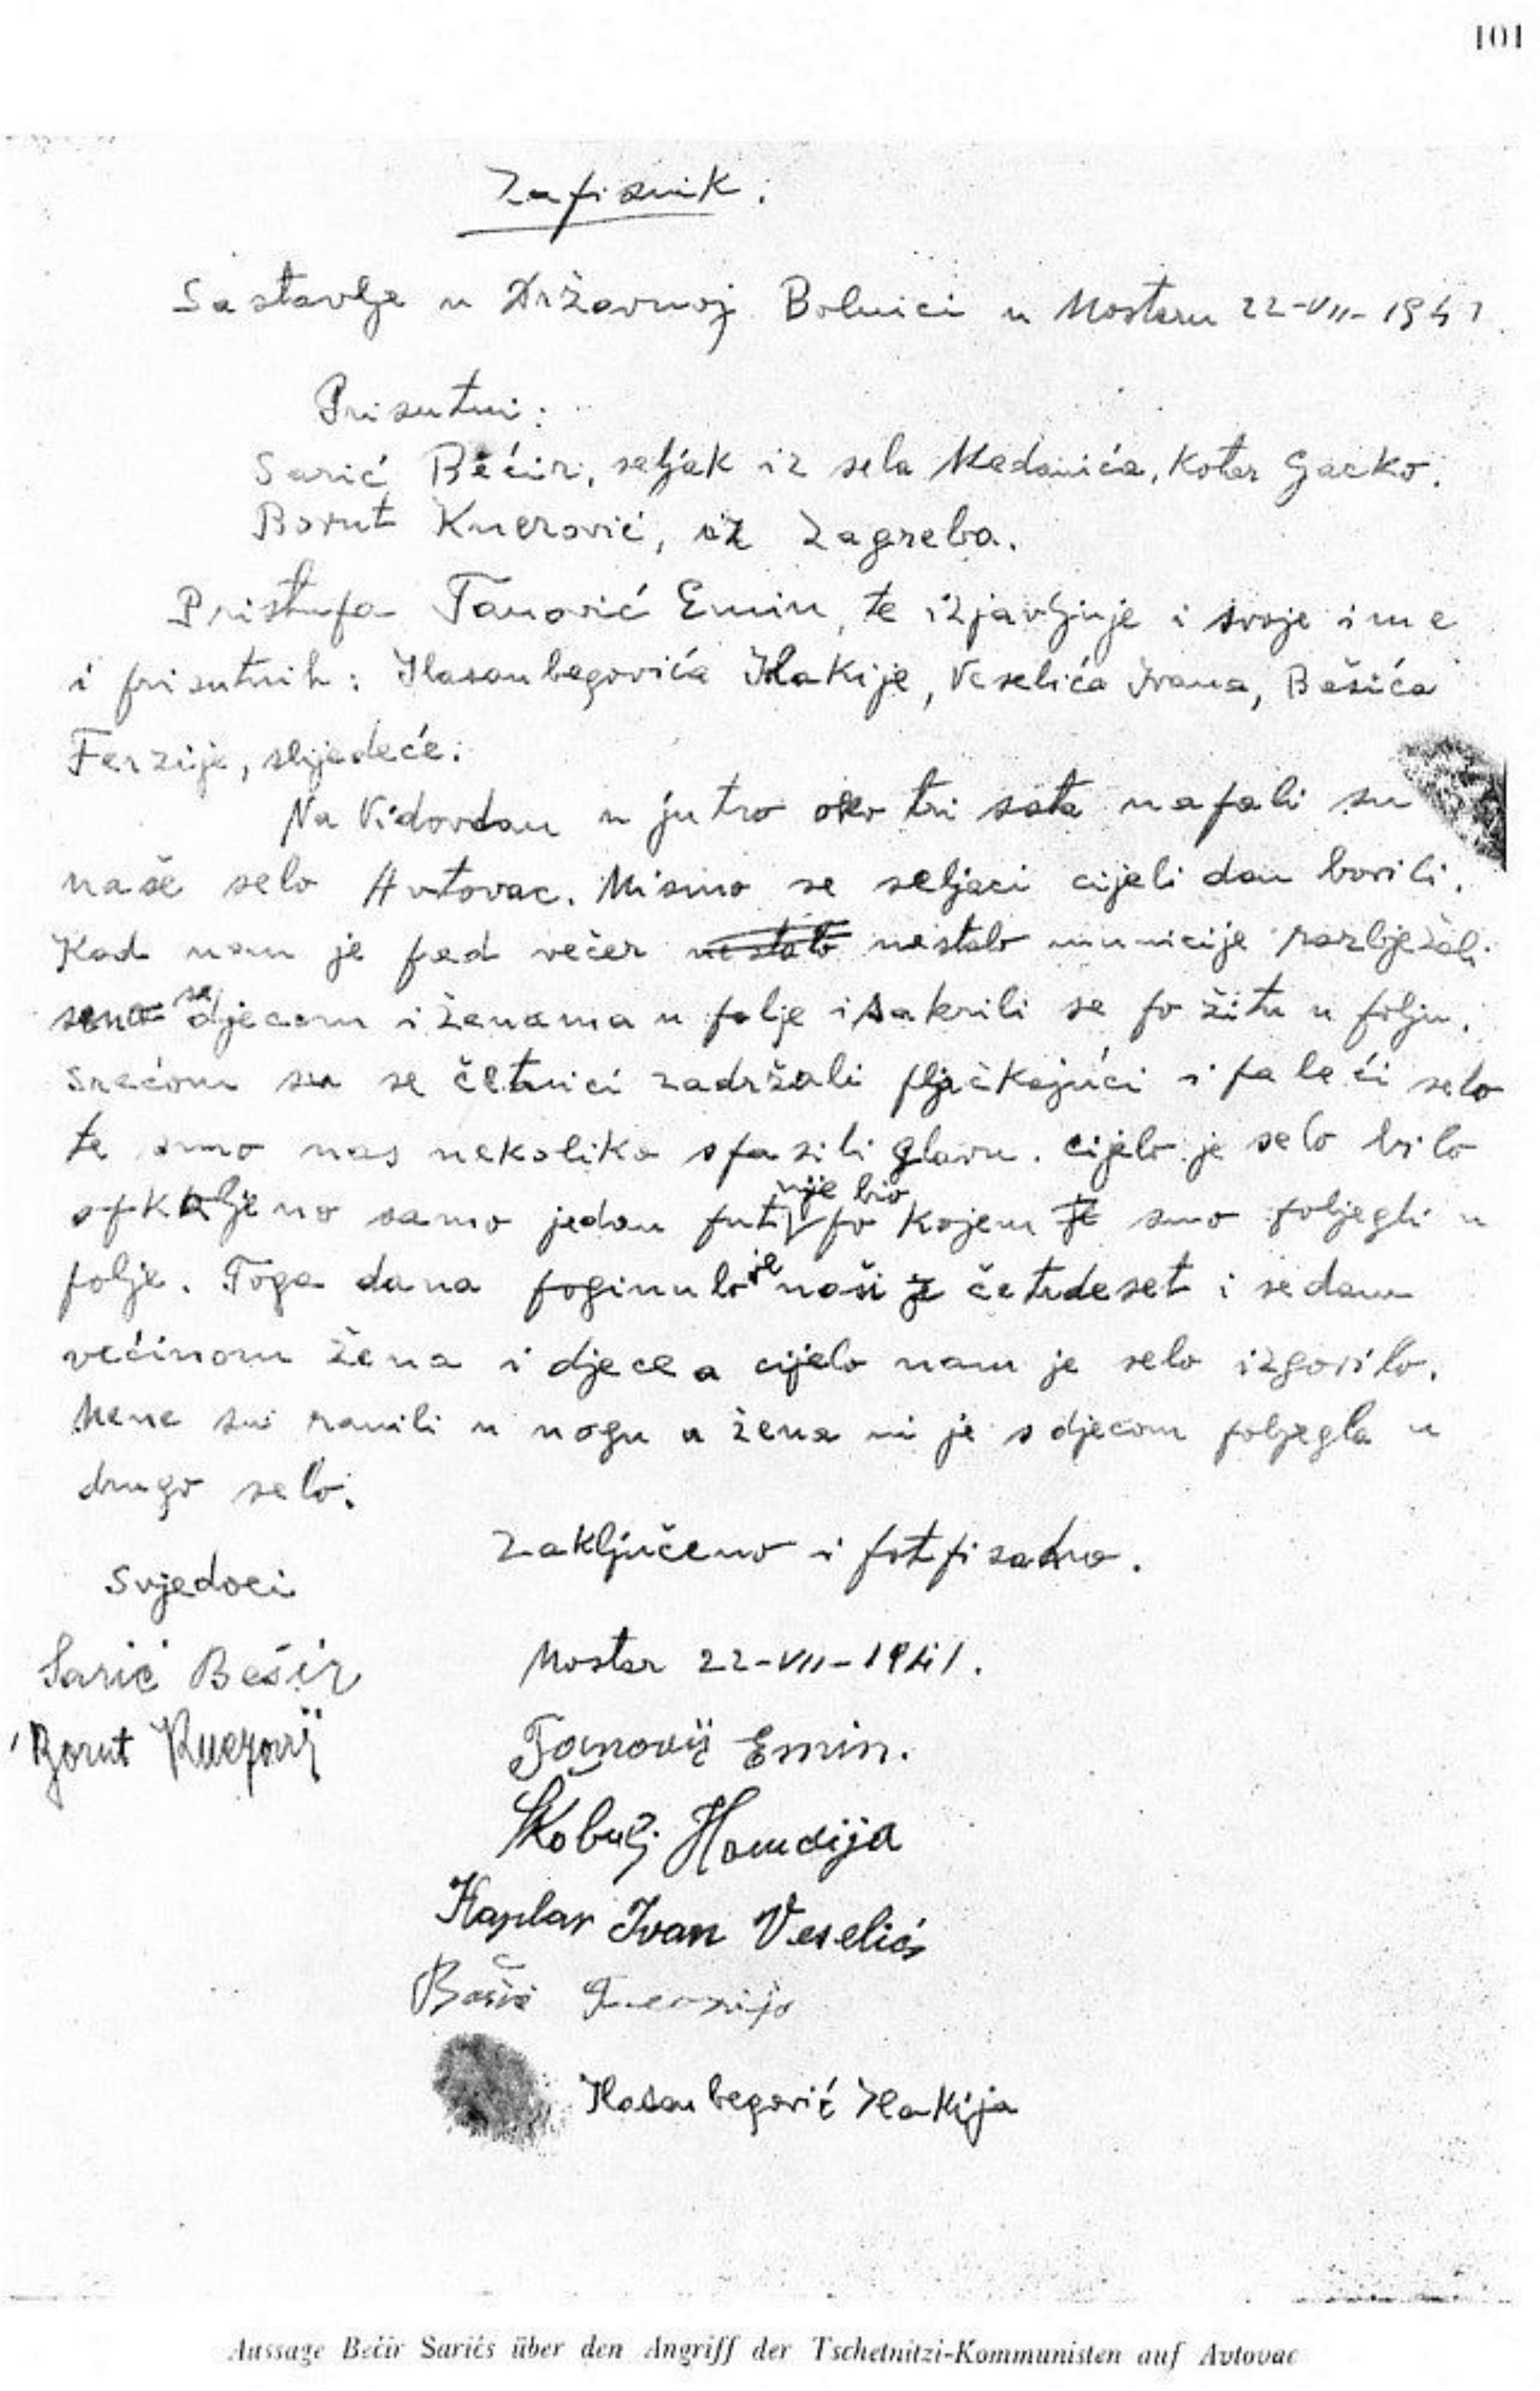 101
Zapisnik.
Sastavlje u Državnoj Bolnici u Mostaru 22-VII-1941
Prisutni:
Sarić Bećir, seljak iz sela Medanića, Kotar Gacko.
Borut Knezović, iz Zagreba.
Pristupa Tanović Emin, te izjavljuje i svoje ime
i prisutnih: Hasanbegovića Hakije, Veselića Ivana, Bašića
Ferzije, slijedeće:
Na Vidovdan u jutro oko tri sata napali su
naše selo Avtovac. Mi smo se seljaci cijeli dan borili.
Kad nam je pod večer nestalo nestalo municije razbježali
smo se djecom i ženama u polje i sakrili se po žitu u polju.
Srećom su se četnici zadržali pljačkajući i paleći selo
te smo nas nekoliko spasili glavu. Cijelo je selo bilo
opkoljeno samo jedan put nije bio po kojem je smo pobjegli u
polje. Toga dana poginulo je naši je četrdeset i sedam
većinom žena i djece a cijelo nam je selo izgorilo.
Mene su ranili u nogu a žena mi je s djecom pobjegla u
drugo selo.
Zaključeno i potpisano.
Svjedoci
Sarić Bećir
Borut Knezović
Mostar 22-VII-1941.
Tanović Emin.
Škobulj Hamdija
Kaplar Ivan Veselić
Bašić
Hasanbegović Hakija
Aussage Bećir Sarićs über den Angriff der Tschetnitzi-Kommunisten auf Avtovac